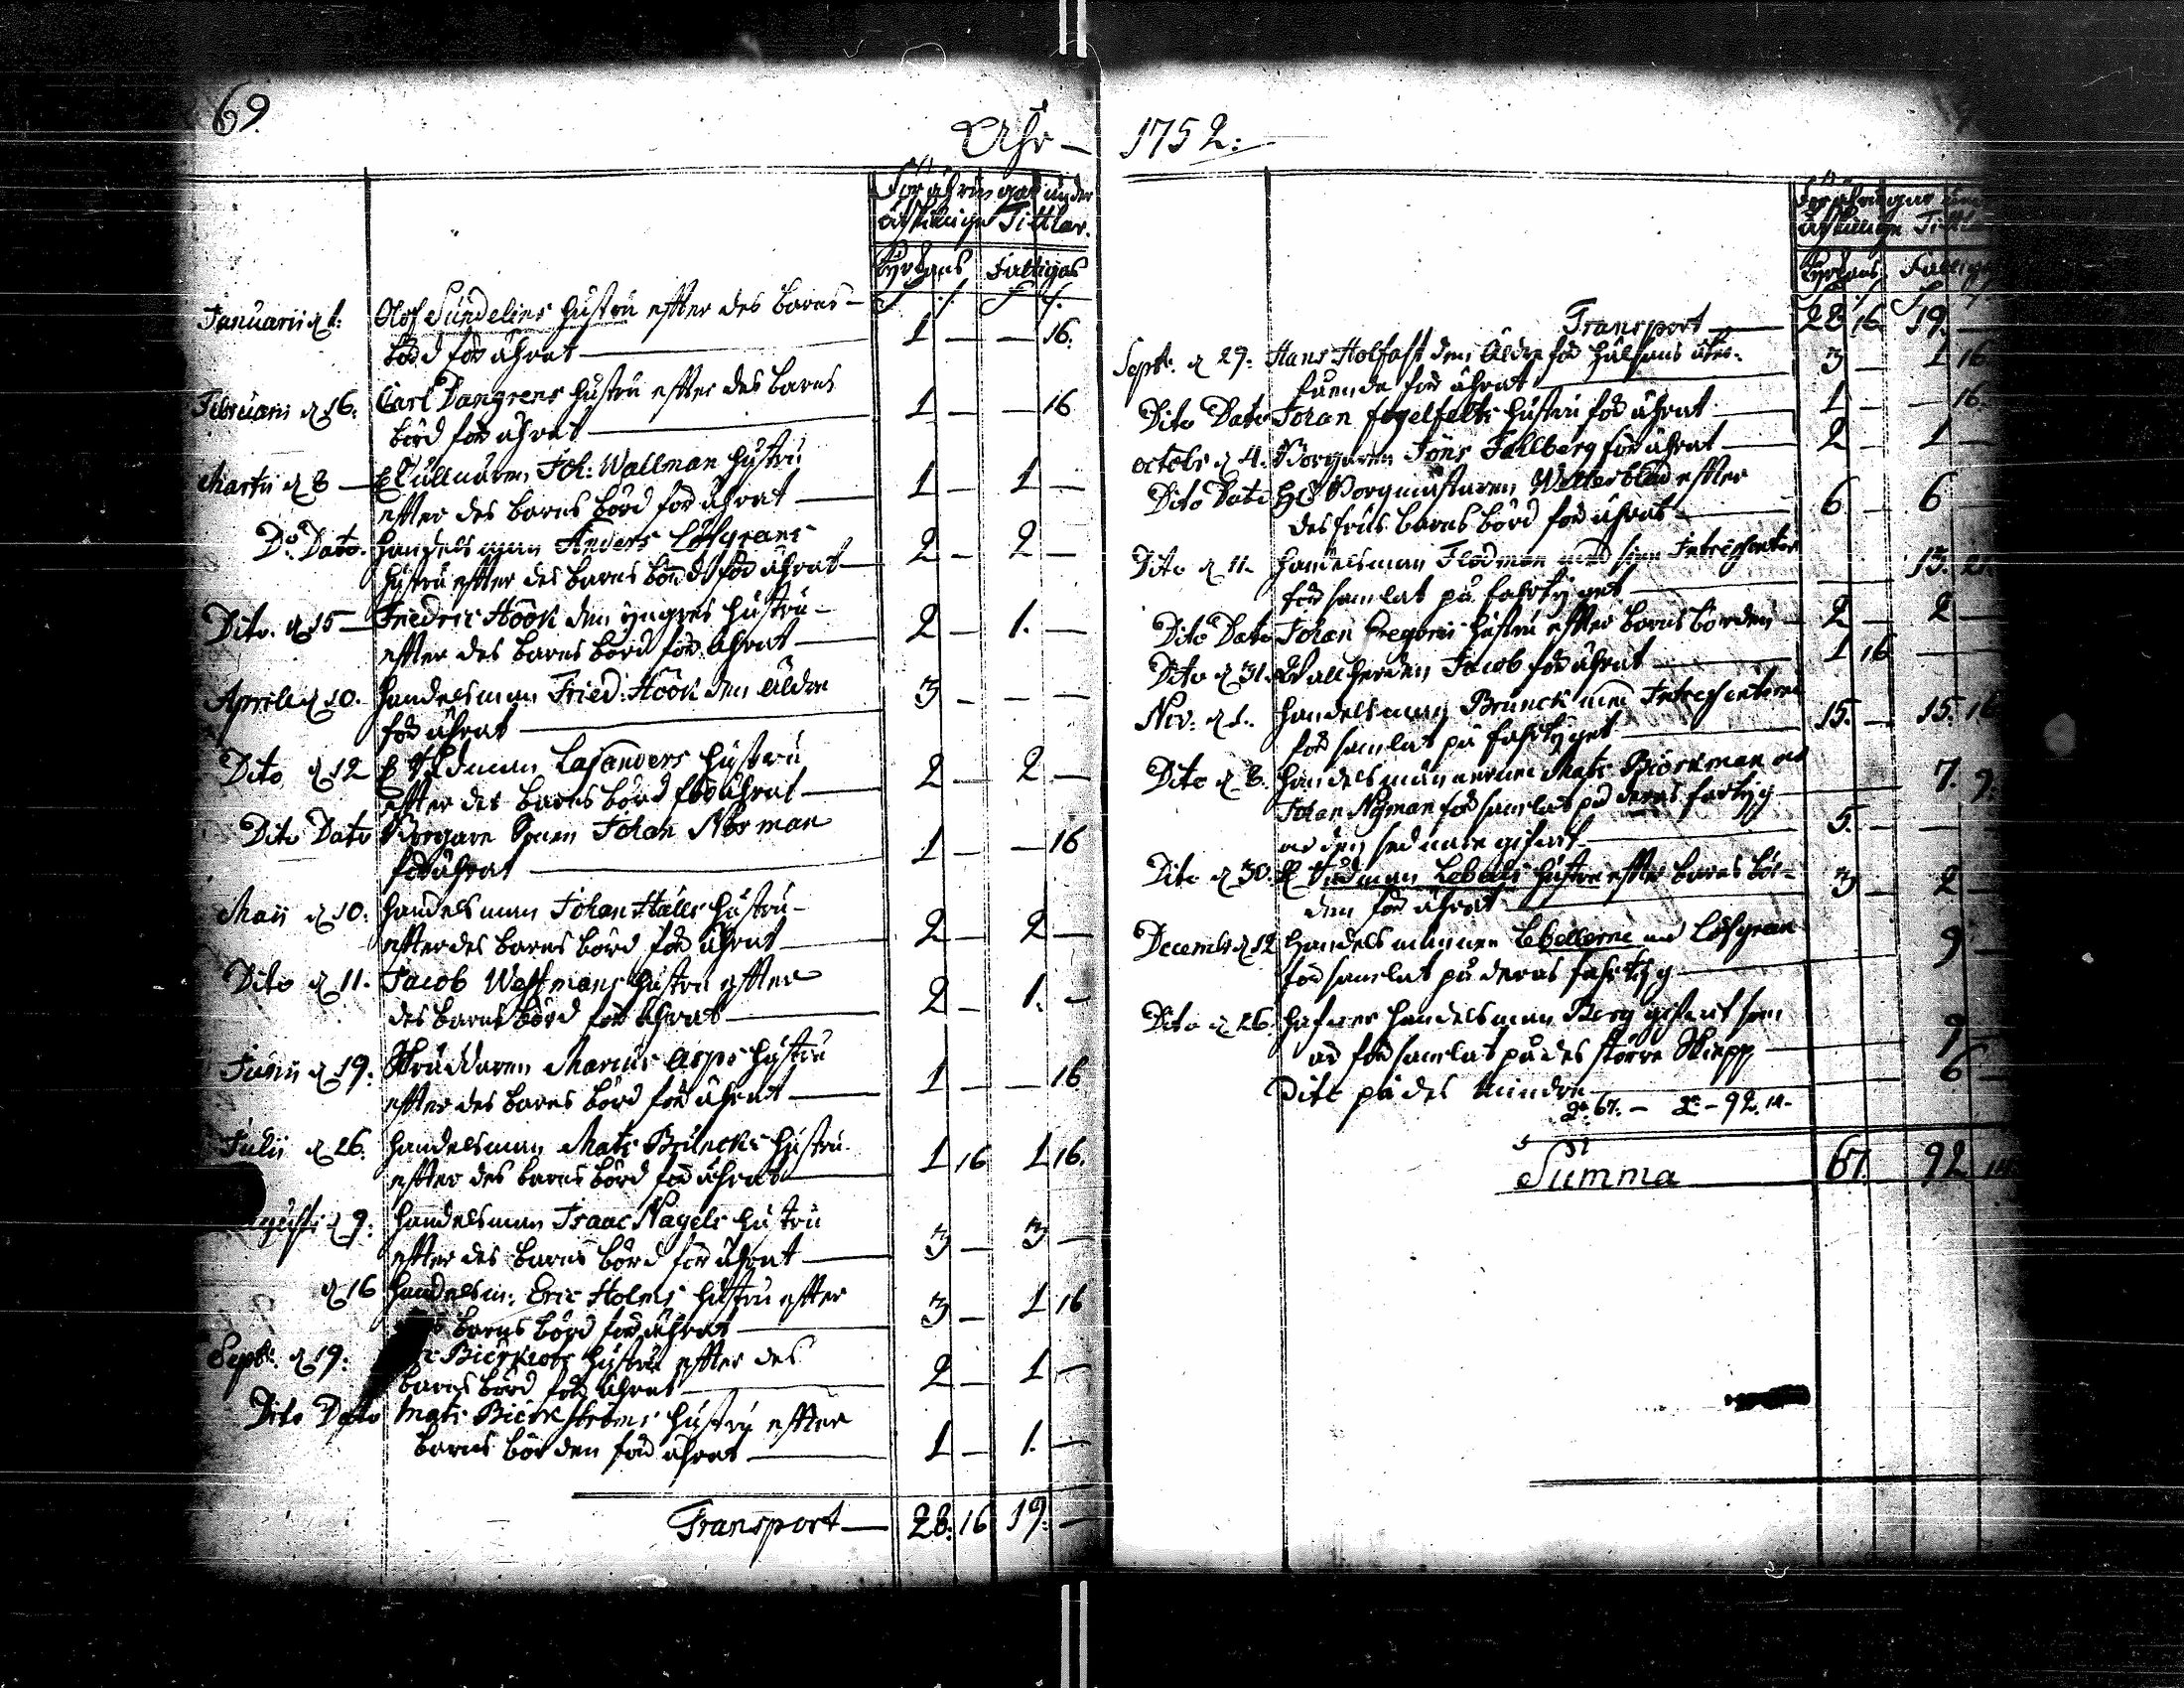 69.
Åhr —
Föräringar under
åtskillige Tittlar.
Kyrkans Fattigas
Januarii d 1: Olof Sundelins hustru effter des barns —
börd förährat — 1 — — 16.
Februarii d 16: Carl Dangrens hustru effter des barns
börd förährat — 1 — — 16
Martii d 8 — Tullnären Joh: Wallman hustru
effter des barns börd förährat — 1 — 1 —
Do Dato. Handelsman Anders Löfgrens
hustru effter des barns börd förährat — 2 — 2 —
Dito. d 15 — Fredric Höök den yngres hustru —
effter des barns börd förährat — 2 — 1. —
Aprill d 10. Handelsman Fried: Höök den äldre
förährat — 3 — — —
Dito d 12 Rådman Lasanders hustru
effter des barns börd förährat — 2 — 2 —
Dito Dato Borgare Sonen Johan Norman
förährat — 1 — — 16
Maii d 10: Handelsman Johan Hälls hustru —
effter des barns börd förährat — 2 — 2 —
Dito d 11. Jacob Westmans hustru effter
des barns börd förährat — 2 — 1. —
Junii d 19: Skräddaren Marcus Asps hustru
effter des barns börd förährat — 1 — — 16
Julii d 26. Handelsman Mats Bruncks hustru
effter des barns börd förährat — 1 16 1 16.
gusti d 9: Handelsman Isaac Nagels hustru
effter des barns börd förährat — 3 — 3 —
d 16 Handelsm: Eric Holms hustru effter
barns börd förährat — 3 — 1 16
Sept: d 19: hustru effter des
barns börd förährat — 2 — 1 —
Dito Dato Mats Biörkströms hustru effter
barns börden förährat — 1 — 1. —
Transport — 28: 16 19: —
1752:
Föräringar
åtskillige
Kyrkans
Transport — 28 16 19. —
Sept: d 29: Hans Holfast den äldre för hälsans åter-
förährat — 3 — 1 16
Dito Dato Johan Fogelfelts hustru förährat — 1 — — 16.
Octobr d 4. Borgaren Jöns Fahlberg förährat — 2 — 1 —
Dito Dato Borgmästaren Wetterblad effter
des frus barns börd förährat — 6 — 6 —
Dito d 11. Handelsman Flodman med sine Intressenter
församlat på fahrtyget — 13.
Dito Dato Johan Gregoris hustru effter barns börden — 2 — 2 —
Dito d 31. Wallherden Jacob förährat — 1 16
Nov: d 1. Handelsman Brunck med Intressenterne
församlat på fahrtyget — 15. — 15. 16
Dito d 8. Handelsmännerne Mats Biörkman och
Johan Nyman församlat på deras fartyg — 7. 9.
och den sednare gifwit — 5. — —
Dito d 30. Rådman Lebells hustru effter barns bör-
den förährat — 3 — 2 —
Decembr d 12 Handelsmännen Lebellerne och Löfgren
församlat på deras fahrtyg — 9 —
Dito d 26. hafwer Handelsman Berg gifwit som
är församlat på des större Skiepp — 9 —
Dito på des mindre — 6 —
67. — — 92. 14.
Summa 67. 92 14